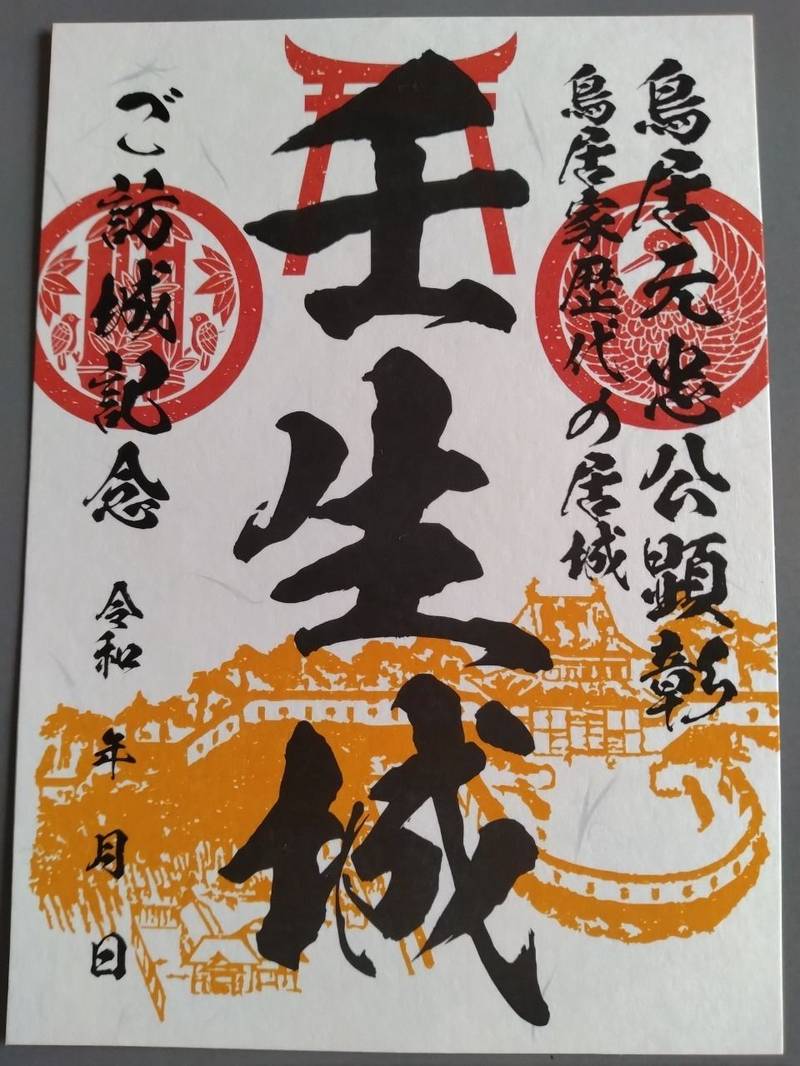 鳥居元忠公顕彰
鳥居家歴代の居城
壬生城
ご訪城記念
令和 年 月 日